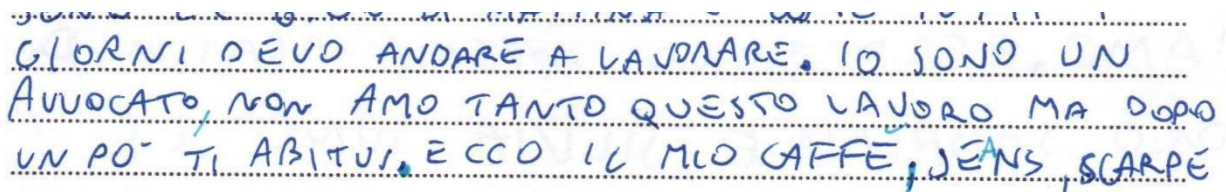 GIORNI DEVO ANDARE A LAVORARE. IO SONO UN
AVVOCATO, NON AMO TANTO QUESTO LAVORO MA DOPO
UN PO' TI ABITUI. ECCO IL MIO CAFFÈ, JEANS, SCARPE